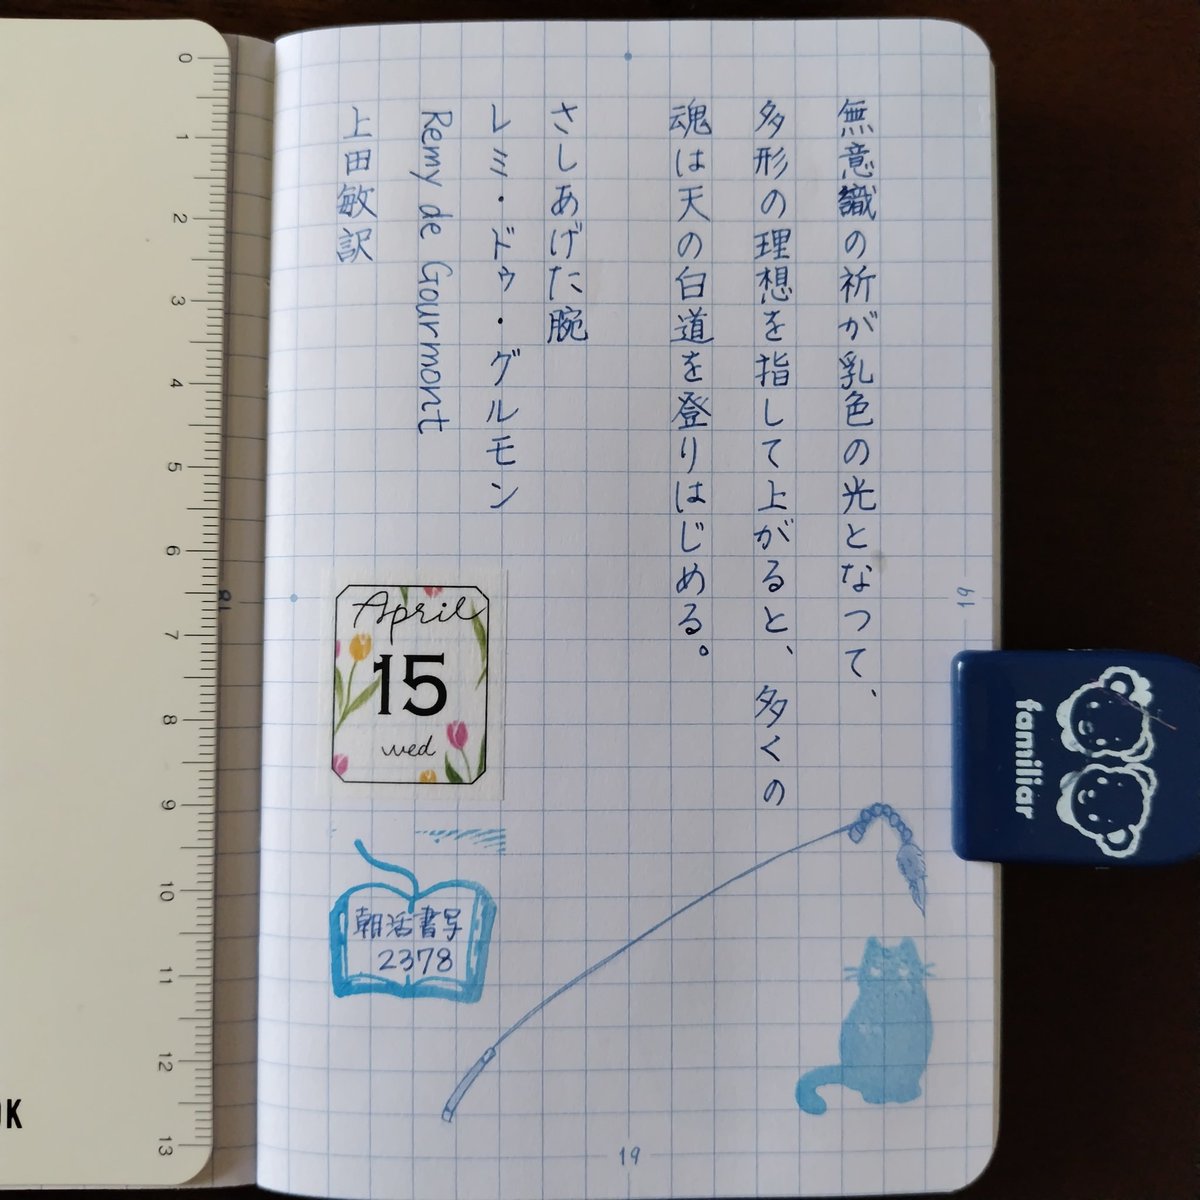 無意識の祈が乳色の光となつて、
多形の理想を指して上がると、多くの
魂は天の白道を登りはじめる。
さしあげた腕
レミ・ドゥ・グルモン
Remy de Gourmont
上田敏訳
April
15
wed
朝活書写
2378
familiar
19
19
18
0
1
2
3
4
5
6
7
8
9
10
11
12
13
OK